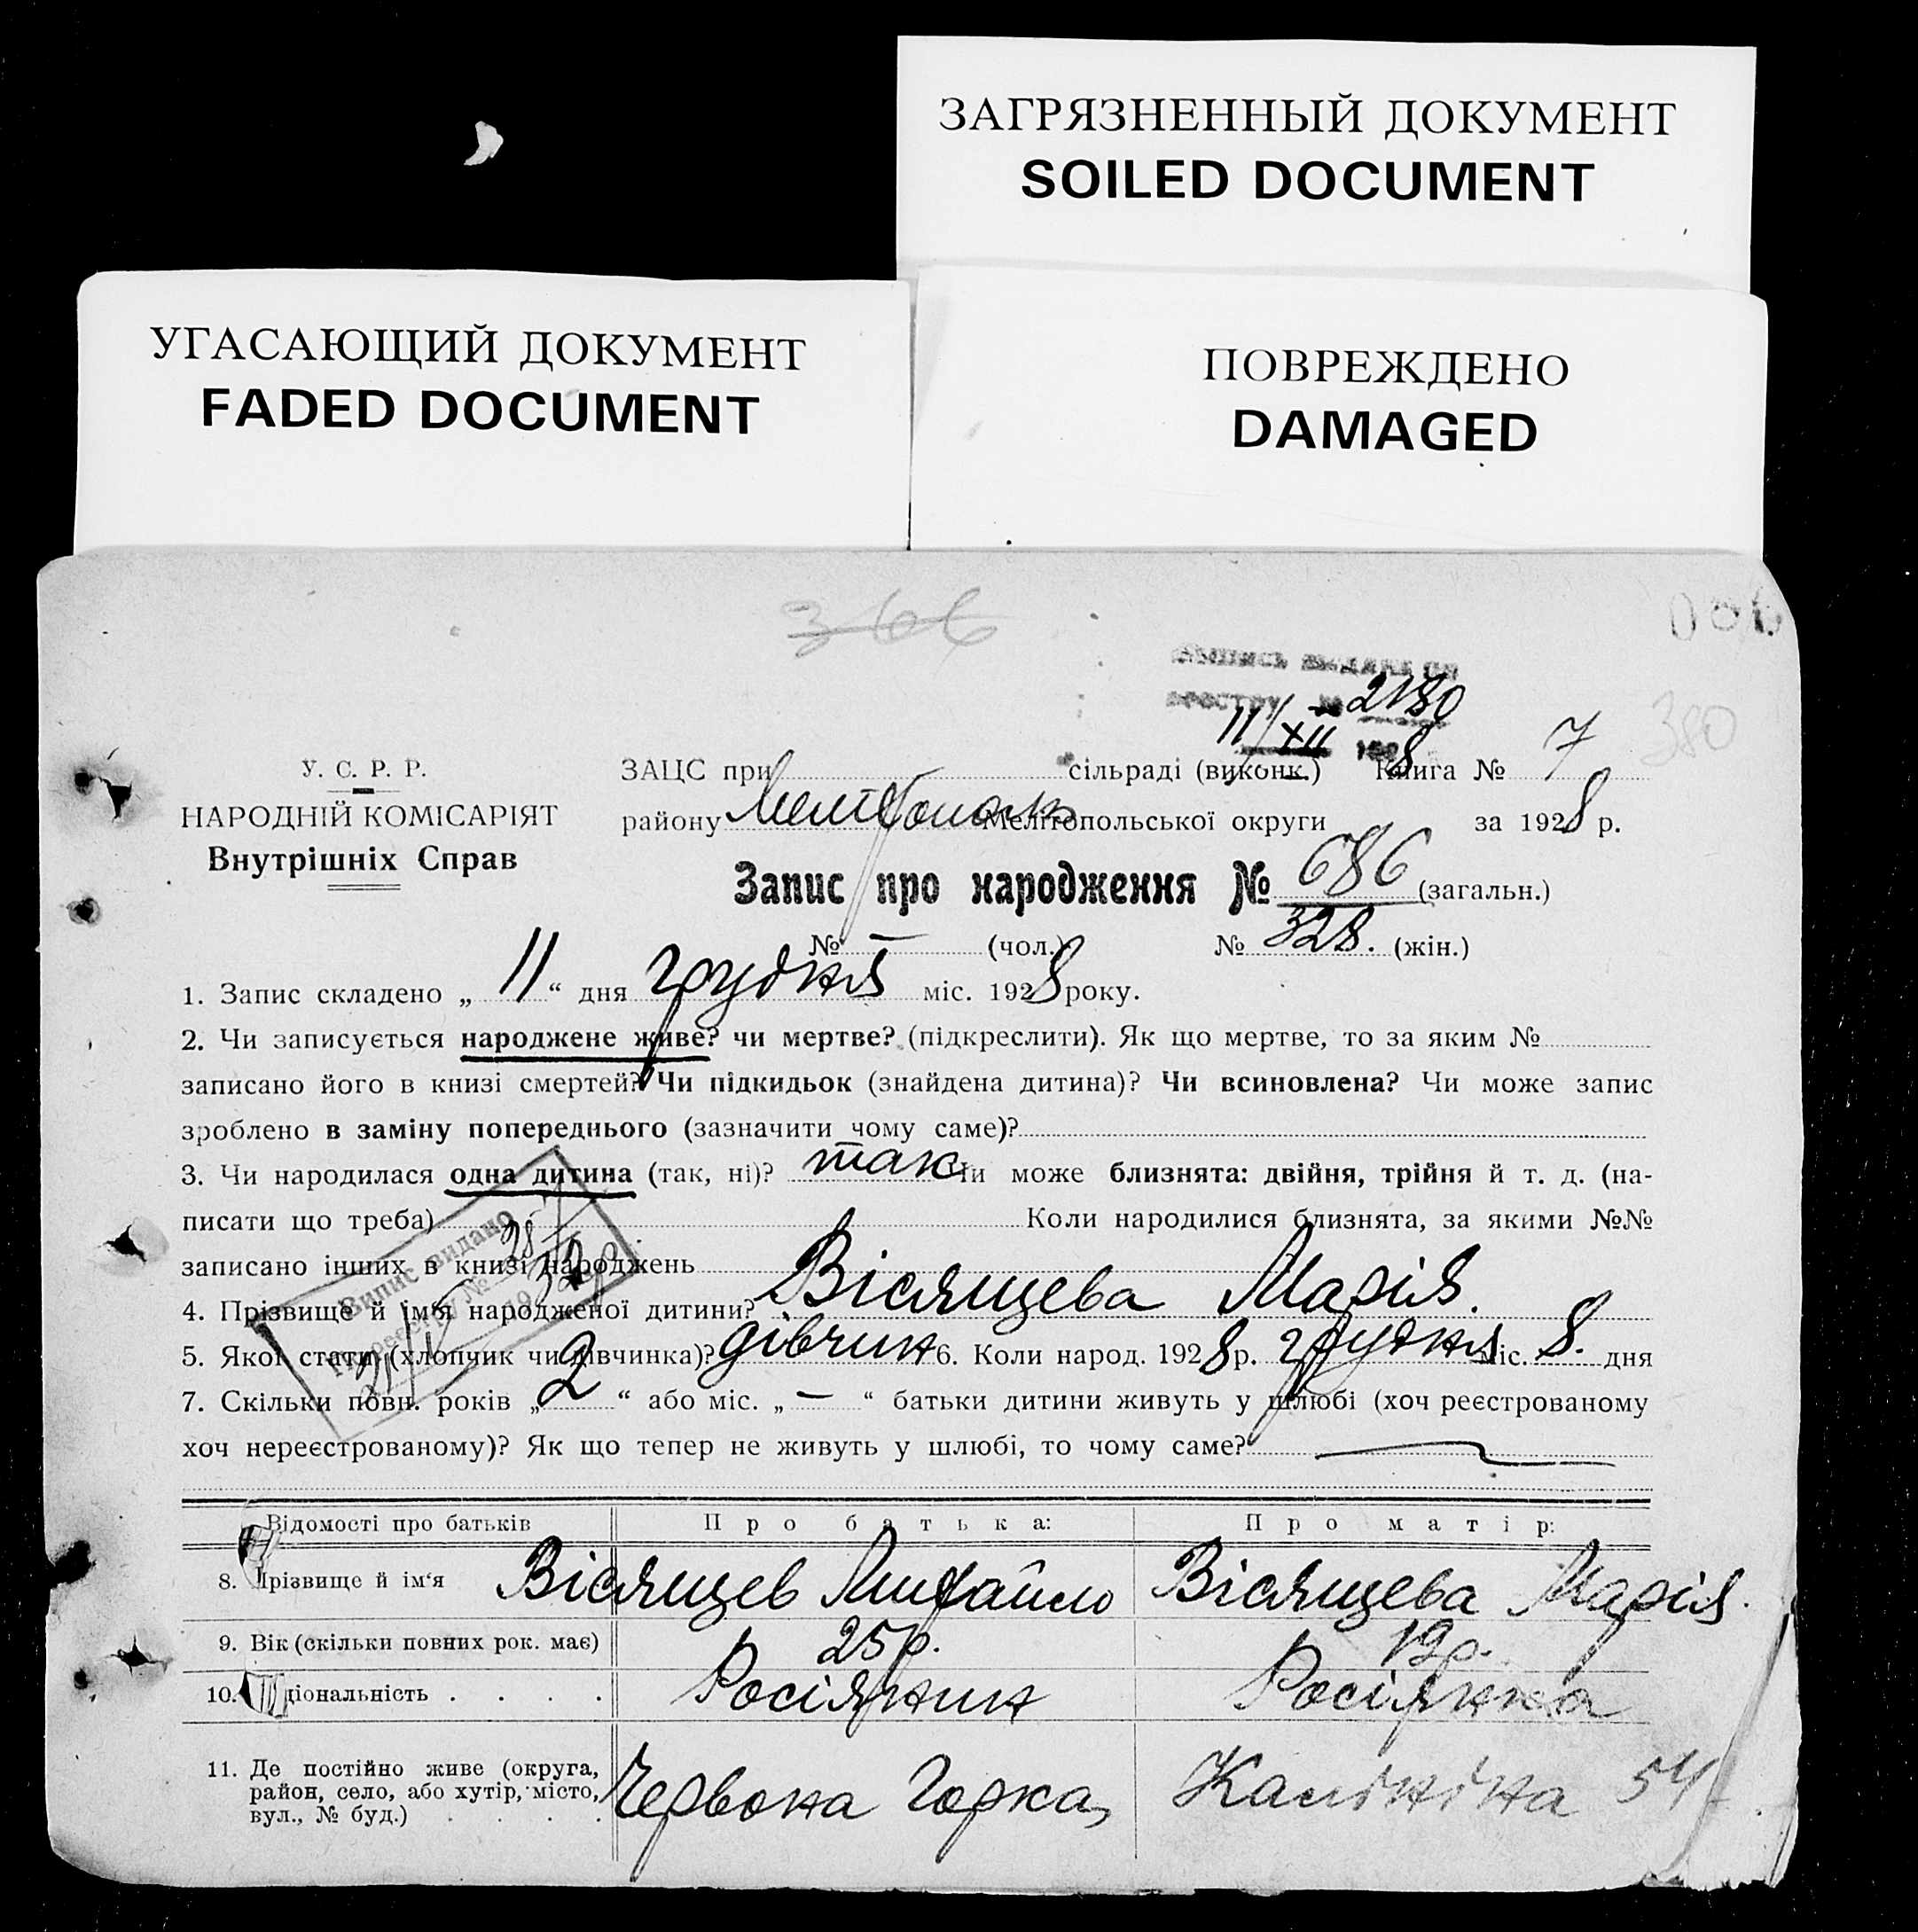 ЗАГРЯЗНЕННЫЙ ДОКУМЕНТ
SOILED DOCUMENT
УГАСАЮЩИЙ ДОКУМЕНТ
FADED DOCUMENT
ПОВРЕЖДЕНО
DAMAGED
366
2180
11/XII 8
380
У. С. Р. Р.
НАРОДНІЙ КОМІСАРІЯТ
Внутрішніх Справ
ЗАЦС при сільраді (виконк.) Книга № 7
району Мелітопольської округи за 1928 р.
Запис про народження № 686 (загальн.)
№ — (чол.) № 328. (жін.)
1. Запис складено „ 11 “ дня грудня міс. 1928 року.
2. Чи записується народжене живе? чи мертве? (підкреслити). Як що мертве, то за яким №
записано його в книзі смертей? Чи підкидьок (знайдена дитина)? Чи всиновлена? Чи може запис
зроблено в заміну попереднього (зазначити чому саме)?
3. Чи народилася одна дитина (так, ні)? так Чи може близнята: двійня, трійня й т. д. (на-
писати що треба) Коли народилися близнята, за якими №№
записано інших в книзі народжень
Випис видано
по реєстру №
4. Прізвище й ім'я народженої дитини? Вісящева Марія.
5. Якої стати (хлопчик чи дівчинка)? дівчин 6. Коли народ. 1928 р. грудня міс. 8. дня
7. Скільки повн. років „ 2 “ або міс. „ — “ батьки дитини живуть у шлюбі (хоч реєстрованому
хоч нереєстрованому)? Як що тепер не живуть у шлюбі, то чому саме? —
Відомості про батьків Про батька: Про матір:
8. Прізвище й ім‘я Вісящев Михайло Вісящева Марія.
9. Вік (скільки повних рок. має) 25 р. 19 р.
10. ціональність . . . . Росіянин Росіянка
11. Де постійно живе (округа,
район, село, або хутір, місто,
вул., № буд.) . . . . Червона Горка, Калініна 54